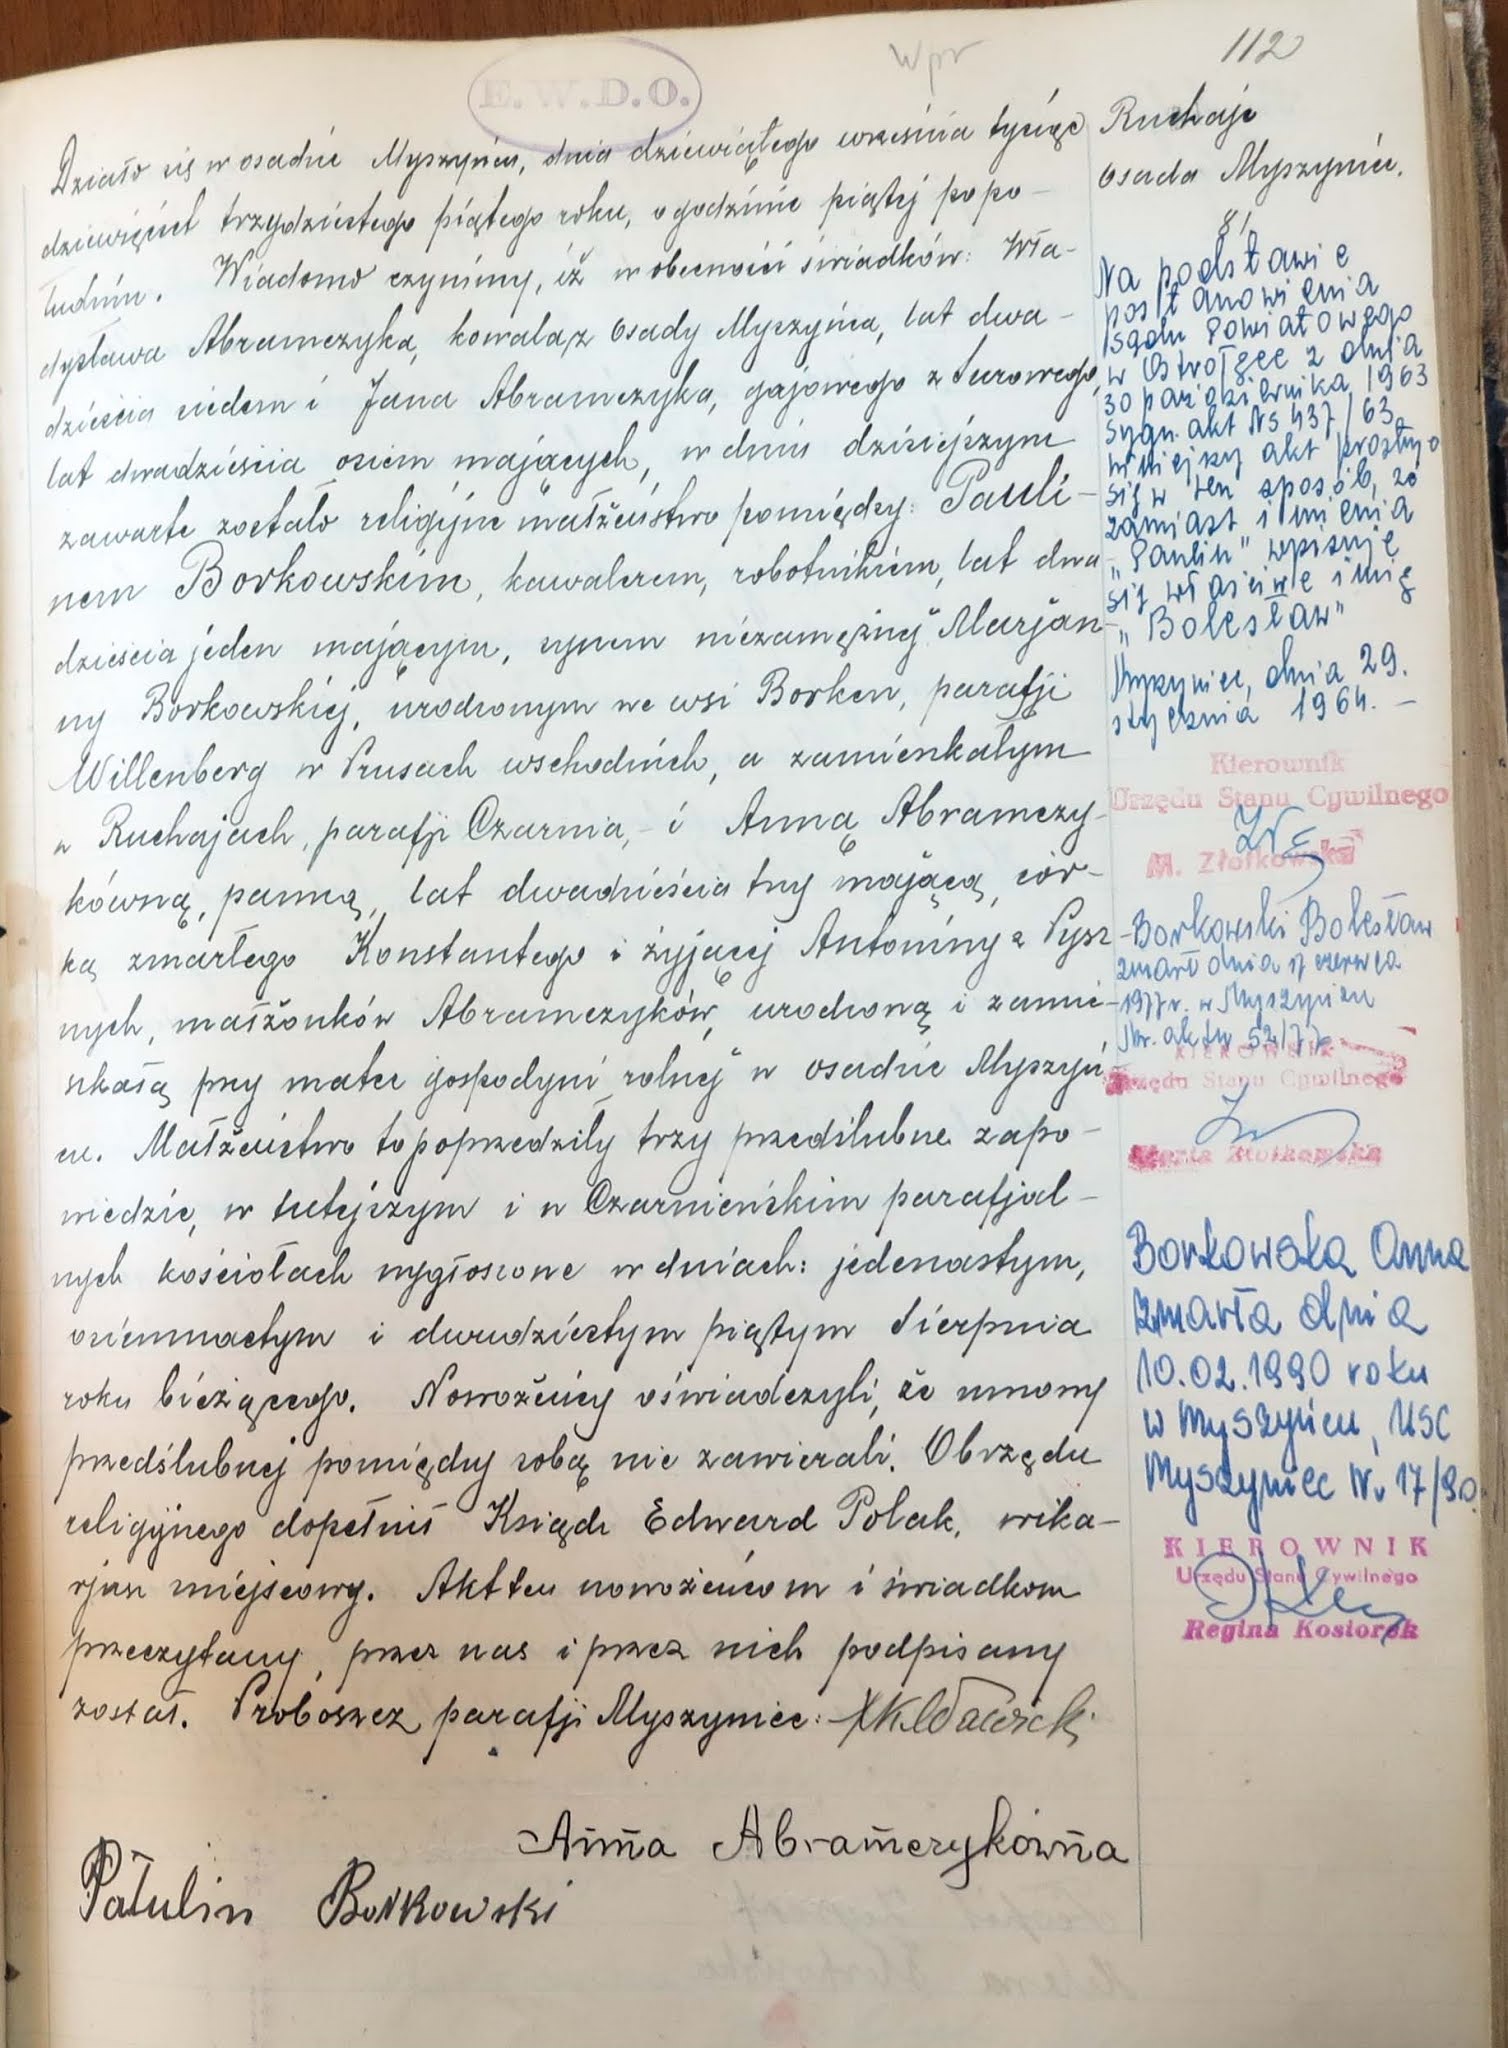 112
Wpr
E.W.D.O.
Działo się w osadzie Myszyńcu, dnia dziewiątego września tysiąc
dziewięćset trzydziestego piątego roku, o godzinie piątej popo-
łudniu. Wiadomo czynimy, iż w obecności świadków: Wła-
dysława Abramczyka, kowala z osady Myszyńca, lat dwa-
dzieścia siedem i Jana Abramczyka, gajowego z Surowego,
lat dwadzieścia osiem mających, w dniu dzisiejszym
zawarte zostało religijne małżeństwo pomiędzy: Pauli-
nem Borkowskim, kawalerem, robotnikiem, lat dwa
dzieścia jeden mającym, synem niezamężnej Marjan-
ny Borkowskiej, urodzonym we wsi Borken, parafji
Willenberg w Prusach wschodnich, a zamieszkałym
w Ruchajach, parafji Czarnia, - i Anną Abramczy-
kówną, panną, lat dwadzieścia trzy mającą, cór-
ką zmarłego Konstantego i żyjącej Antoniny z Pysz-
nych, małżonków Abramczyków, urodzoną i zamie-
szkałą przy matce gospodyni rolnej w osadzie Myszyń
cu. Małżeństwo to poprzedziły trzy przedślubne zapo-
wiedzie, w tutejszym i w Czarnieńskim parafjal-
nych kościołach wygłoszone w dniach: jedenastym,
osiemnastym i dwudziestym piątym sierpnia
roku bieżącego. Nowożeńcy oświadczyli, że umowy
przedślubnej pomiędzy sobą nie zawierali. Obrzędu
religijnego dopełnił Ksiądz Edward Polak, wika-
rjusz miejscowy. Akt ten nowożeńcom i świadkom
przeczytany, przez nas i przez nich podpisany
został. Proboszcz parafji Myszyniec:
Anna Abramczykówna
Paulin Borkowski
Ruchaje
osada Myszyniec.
81
Na podstawie
postanowienia
Sądu Powiatowego
w Ostrołęce z dnia
30 października 1963
sygn. akt Ns 437/63
niniejszy akt prostuje
się w ten sposób, że
zamiast imienia
„Paulin" wpisuje
się właściwe imię
„Bolesław"
Myszyniec, dnia 29.
stycznia 1964. -
Kierownik
Urzędu Stanu Cywilnego
M. Złotkowska
Borkowski Bolesław
zmarł dnia 17 czerwca
1977 r. w Myszyńcu
Nr. aktu 52/77
KIEROWNIK
Urzędu Stanu Cywilnego
Marta Złotkowska
Borkowska Anna
zmarła dnia
10.02.1990 roku
w Myszyńcu, USC
Myszyniec Nr 17/90.
KIEROWNIK
Urzędu Stanu Cywilnego
Regina Kosiorek